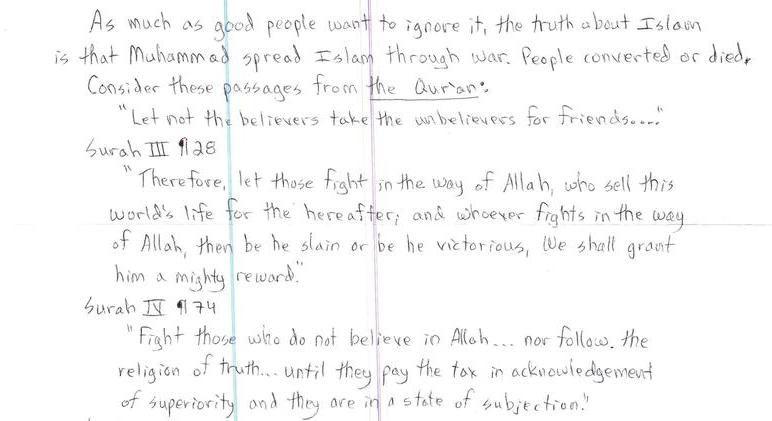 As much as good people want to ignore it, the truth about Islam
is that Muhammad spread Islam through war. People converted or died.
Consider these passages from the Qur'an:
"Let not the believers take the unbelievers for friends....."
Surah III ¶28
"Therefore, let those fight in the way of Allah, who sell this
world's life for the hereafter; and whoever fights in the way
of Allah, then be he slain or be he victorious, We shall grant
him a mighty reward."
Surah IV ¶74
"Fight those who do not believe in Allah... nor follow. the
religion of truth... until they pay the tax in acknowledgement
of superiority and they are in a state of subjection."